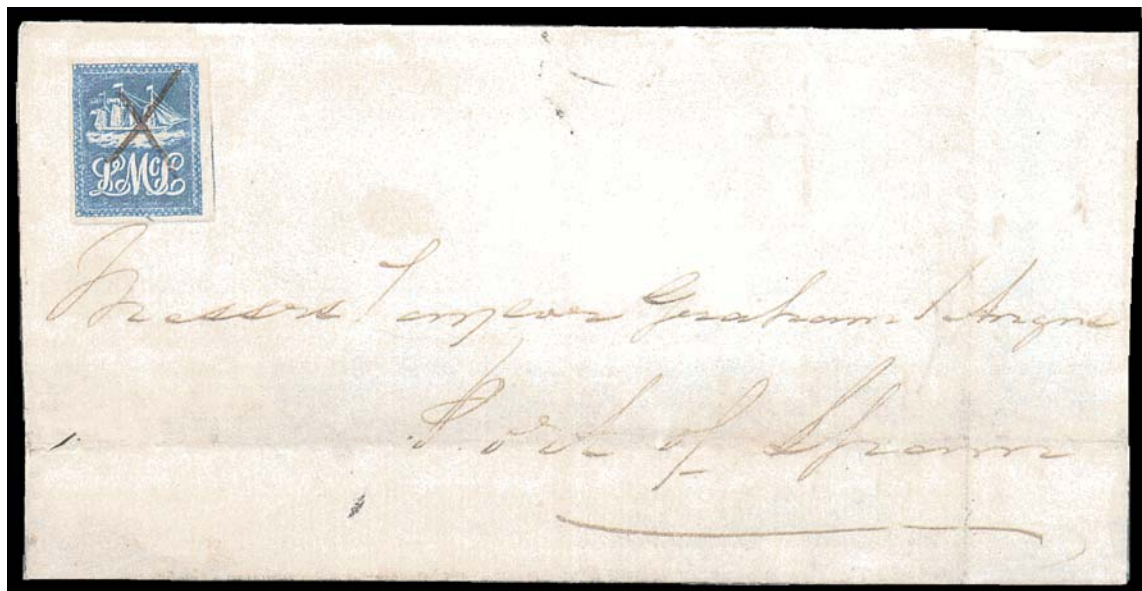 LMcL
Messrs Graham Angus
Port of Spain